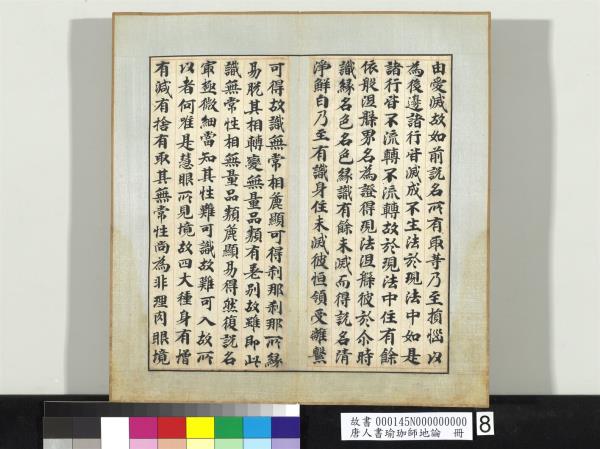 由愛滅故如前說名所有取等乃至損惱以
為後邊諸行皆滅成不生法於現法中如是
諸行皆不流轉不流轉故於現法中住有餘
依般涅槃界名為證得現法涅槃彼於尒時
識緣名色名色緣識有餘未滅而得說名清
淨鮮白乃至有識身住未滅彼恒領受離繫
可得故識無常相麁顯可得剎那剎那所緣
易脫其相轉變無量品類有差別故雖即此
識無常性相無量品類麁顯易得然復說名
㝡極微細當知其性難可識故難可入故所
以者何唯是慧眼所見境故四大種身有增
有減有捨有取其無常性尚為非理肉眼境
故書 000145N000000000
唐人書瑜珈師地論 冊
8